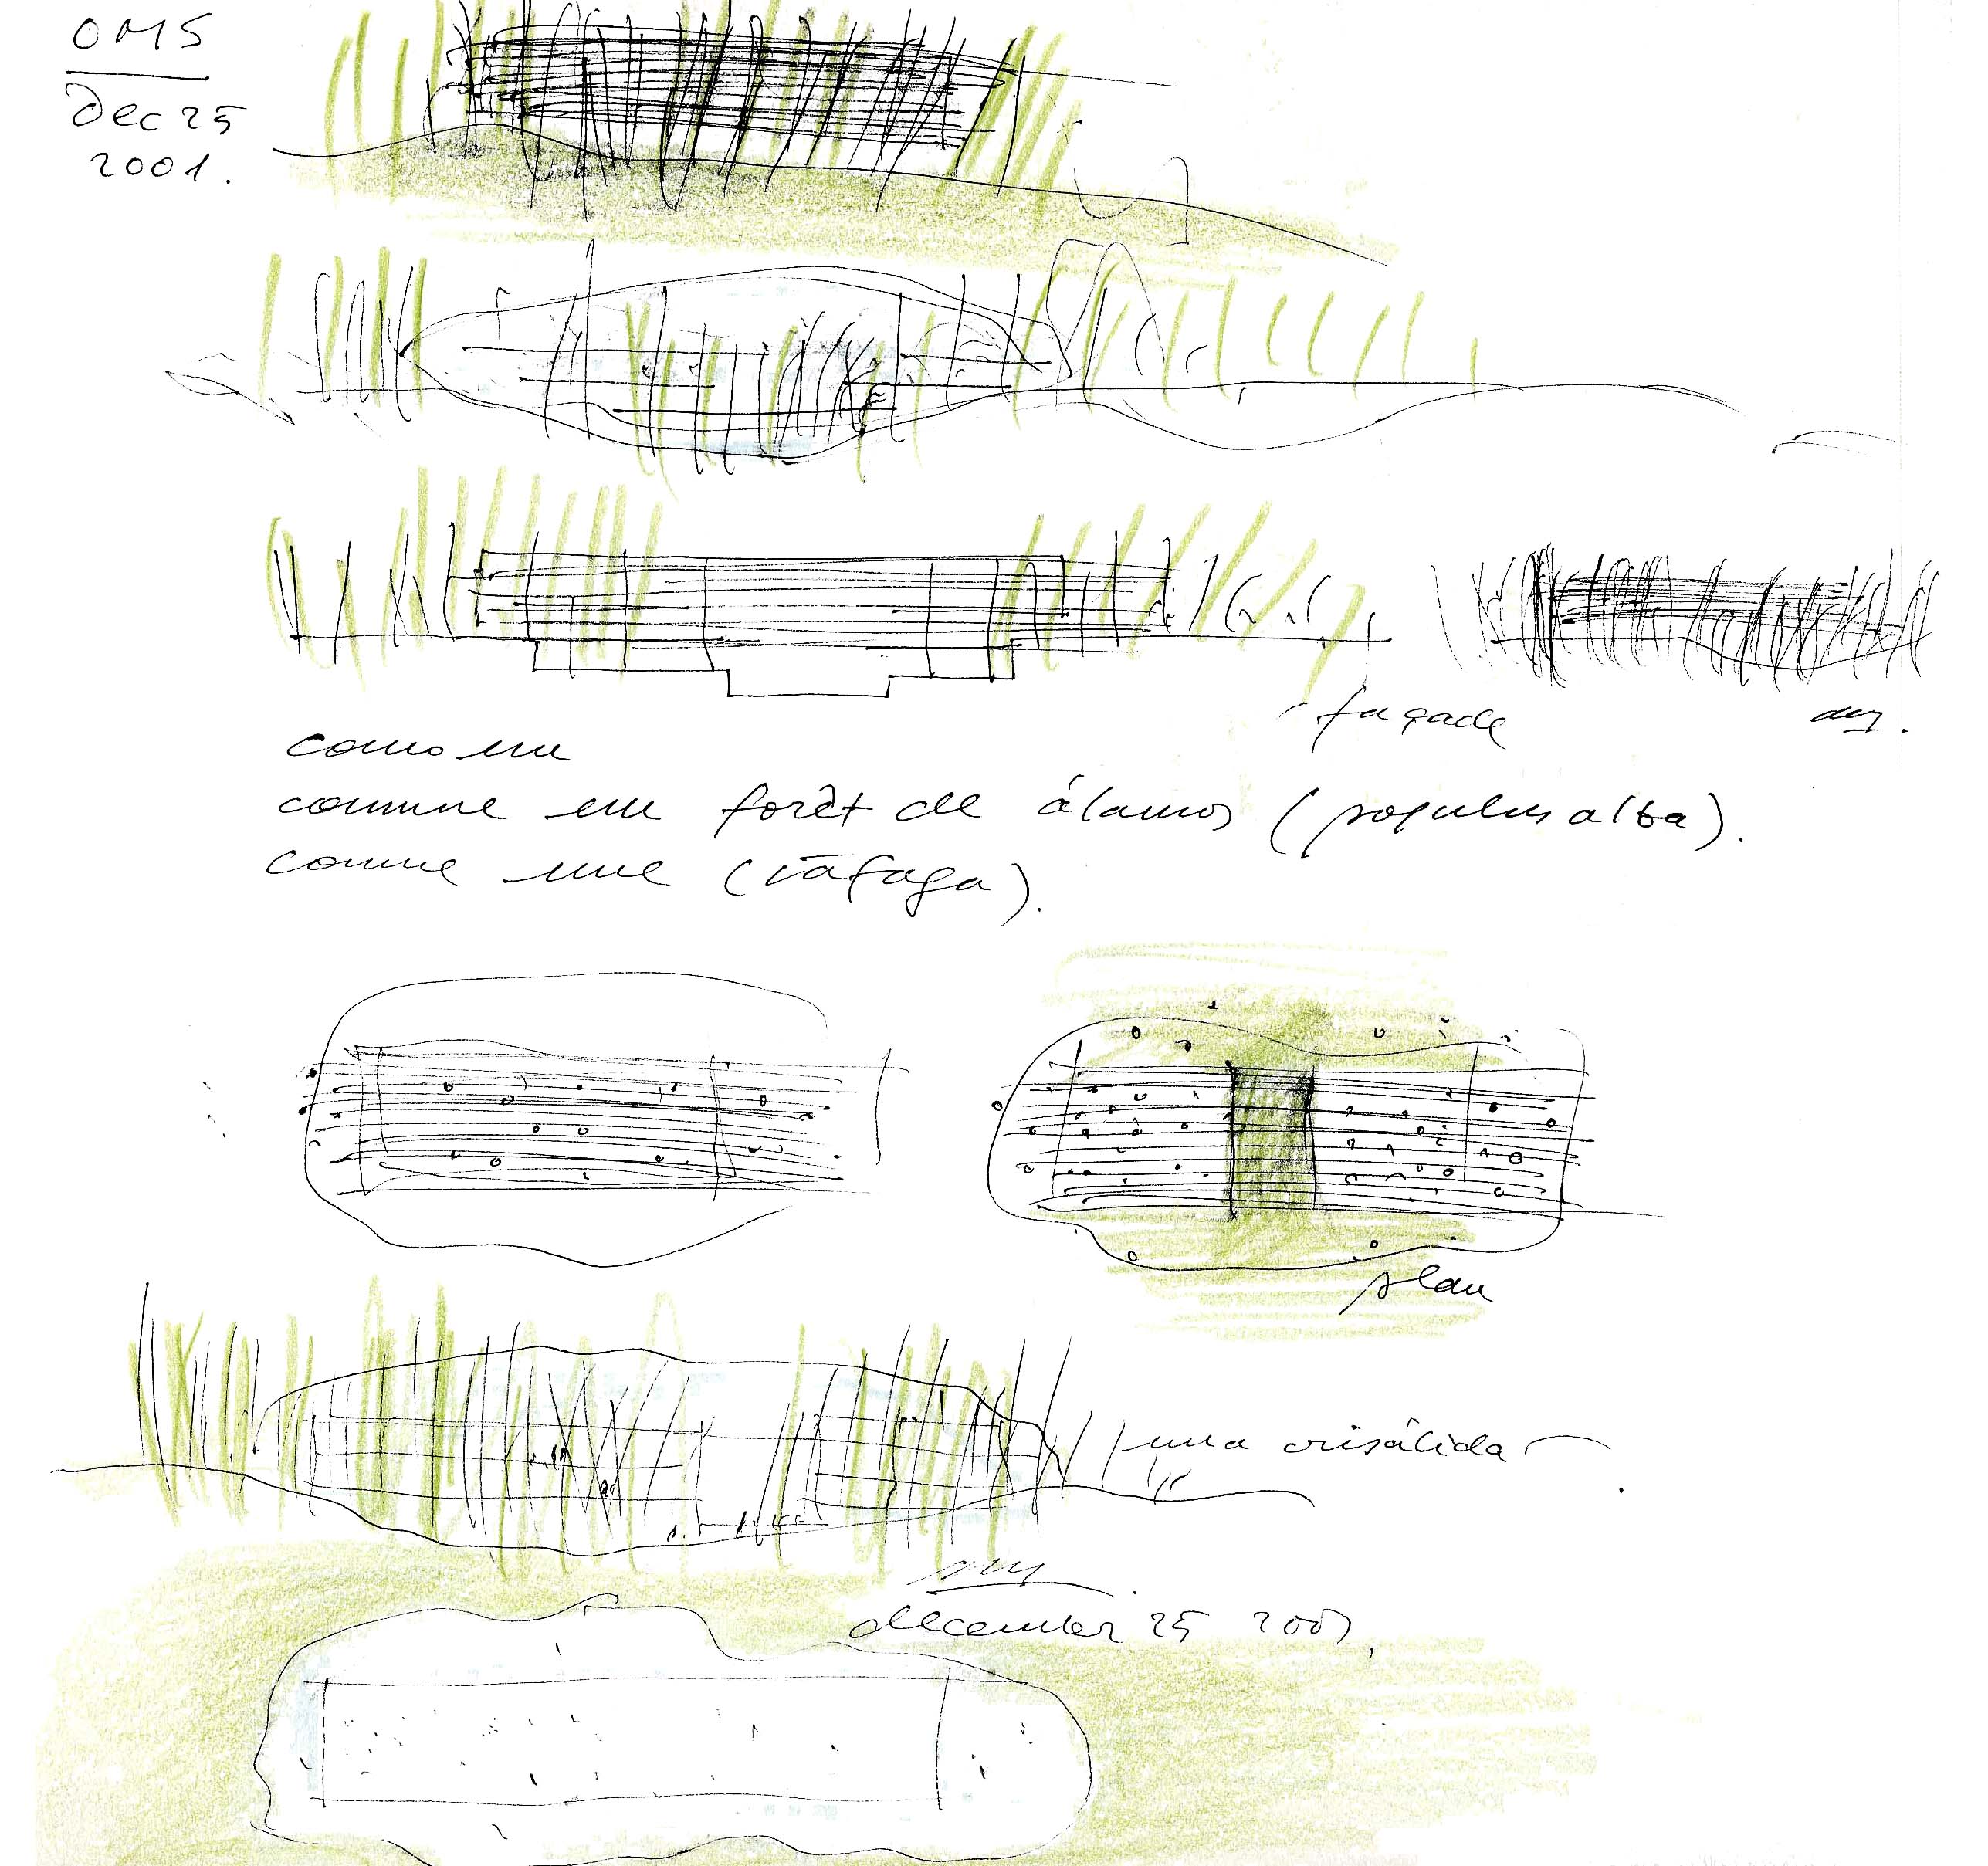 OMS
Dec 25
2001.
façade
como un
comme un forêt de álamos (populus alba).
comme une (ráfaga).
plan
una crisálida
december 25 2001.